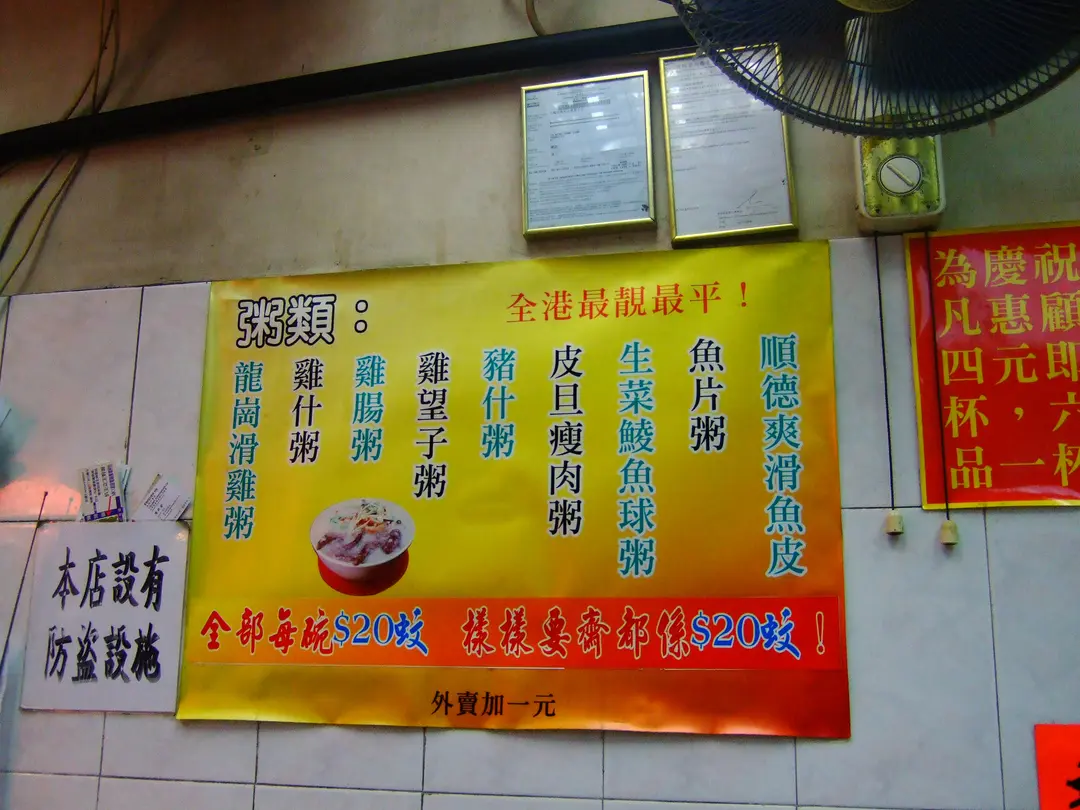 粥類：
全港最靚最平！
順德爽滑魚皮
魚片粥
生菜鯪魚球粥
皮旦瘦肉粥
豬什粥
雞望子粥
雞腸粥
雞什粥
龍崗滑雞粥
全部每碗$20蚊 樣樣要齊都係$20蚊！
外賣加一元
本店設有
防盜設施
為慶祝
凡惠顧
四元即
杯，六
品一杯